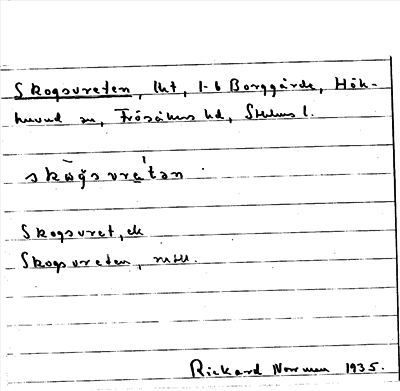 Skogsvreten, lht, 1-6 Borggärde, Hök-
huvud sn, Frösåkers hd, Sthlms l.
skògsvre̝´tən
Skogsvret, ek
Skogsvreten, mtll.
Rickard Norman 1935.